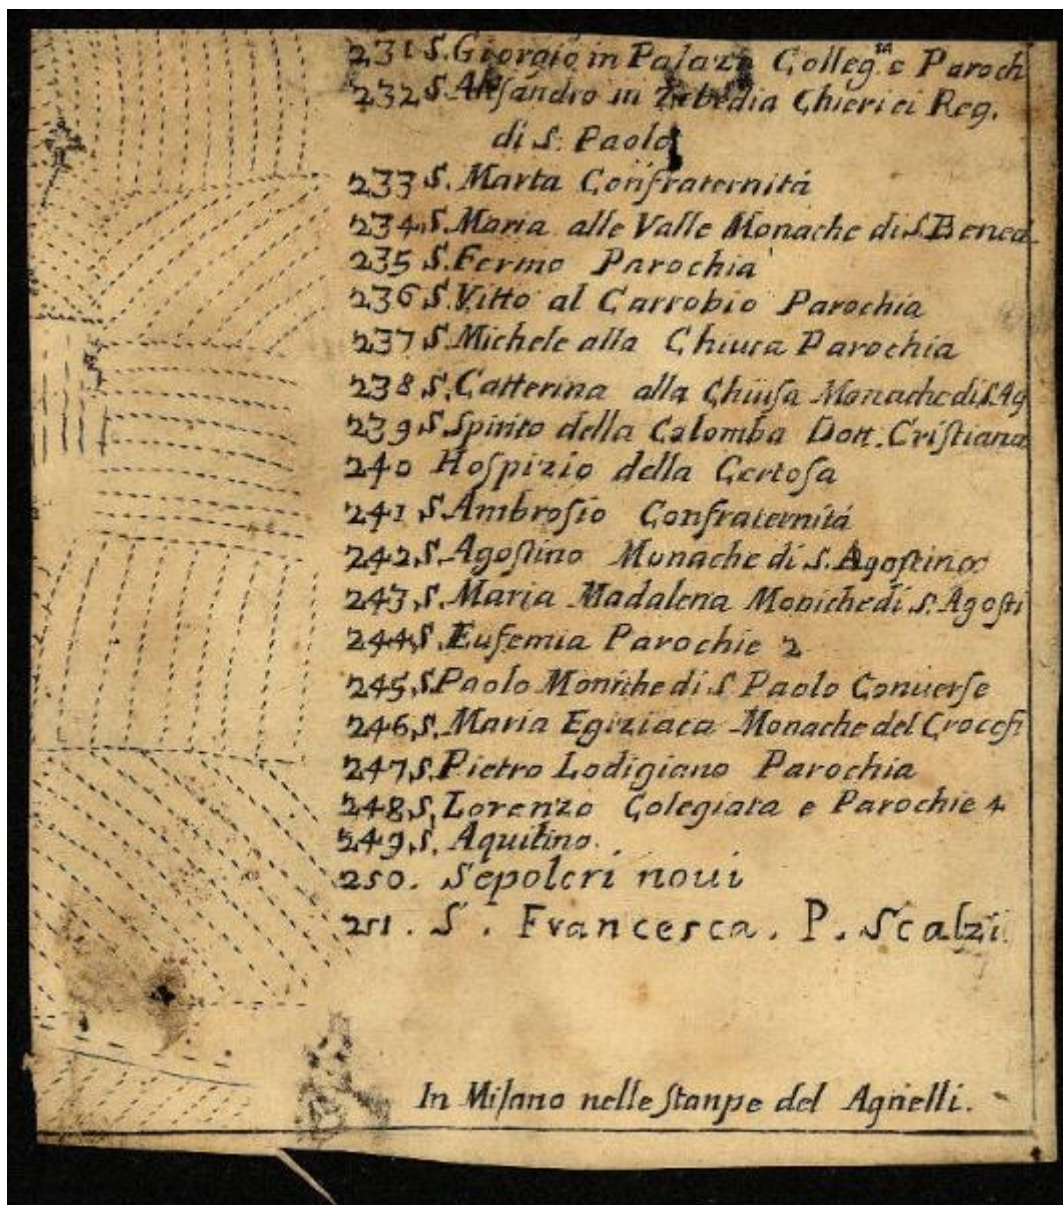 231 S. Giorgio in Palazo Colleg.ta e Paroch
232 S. Alesandro in Zebedia Chierici Reg.
di S. Paolo
233 S. Marta Confraternitá
234 S. Maria alle Valle Monache di S. Bened.
235 S. Fermo Parochia
236 S. Vitto al Carrobio Parochia
237 S. Michele alla Chiusa Parochia
238 S. Catterina alla Chiusa Monache di S. Ag
239 S. Spirito della Colomba Dott. Cristiana
240 Hospizio della Certosa
241 S. Ambrosio Confraternitá
242 S. Agostino Monache di S. Agostino
243 S. Maria Madalena Moniche di S. Agosti
244 S. Eufemia Parochie 2
245 S. Paolo Moniche di S. Paolo Conuerse
246 S. Maria Egiziaca Monache del Crocefi
247 S. Pietro Lodigiano Parochia
248 S. Lorenzo Colegiata e Parochie 4
249 S. Aquilino.
250. Sepolcri noui
251. S. Francesca. P. Scalzi
In Milano nelle stanpe del Agnelli.